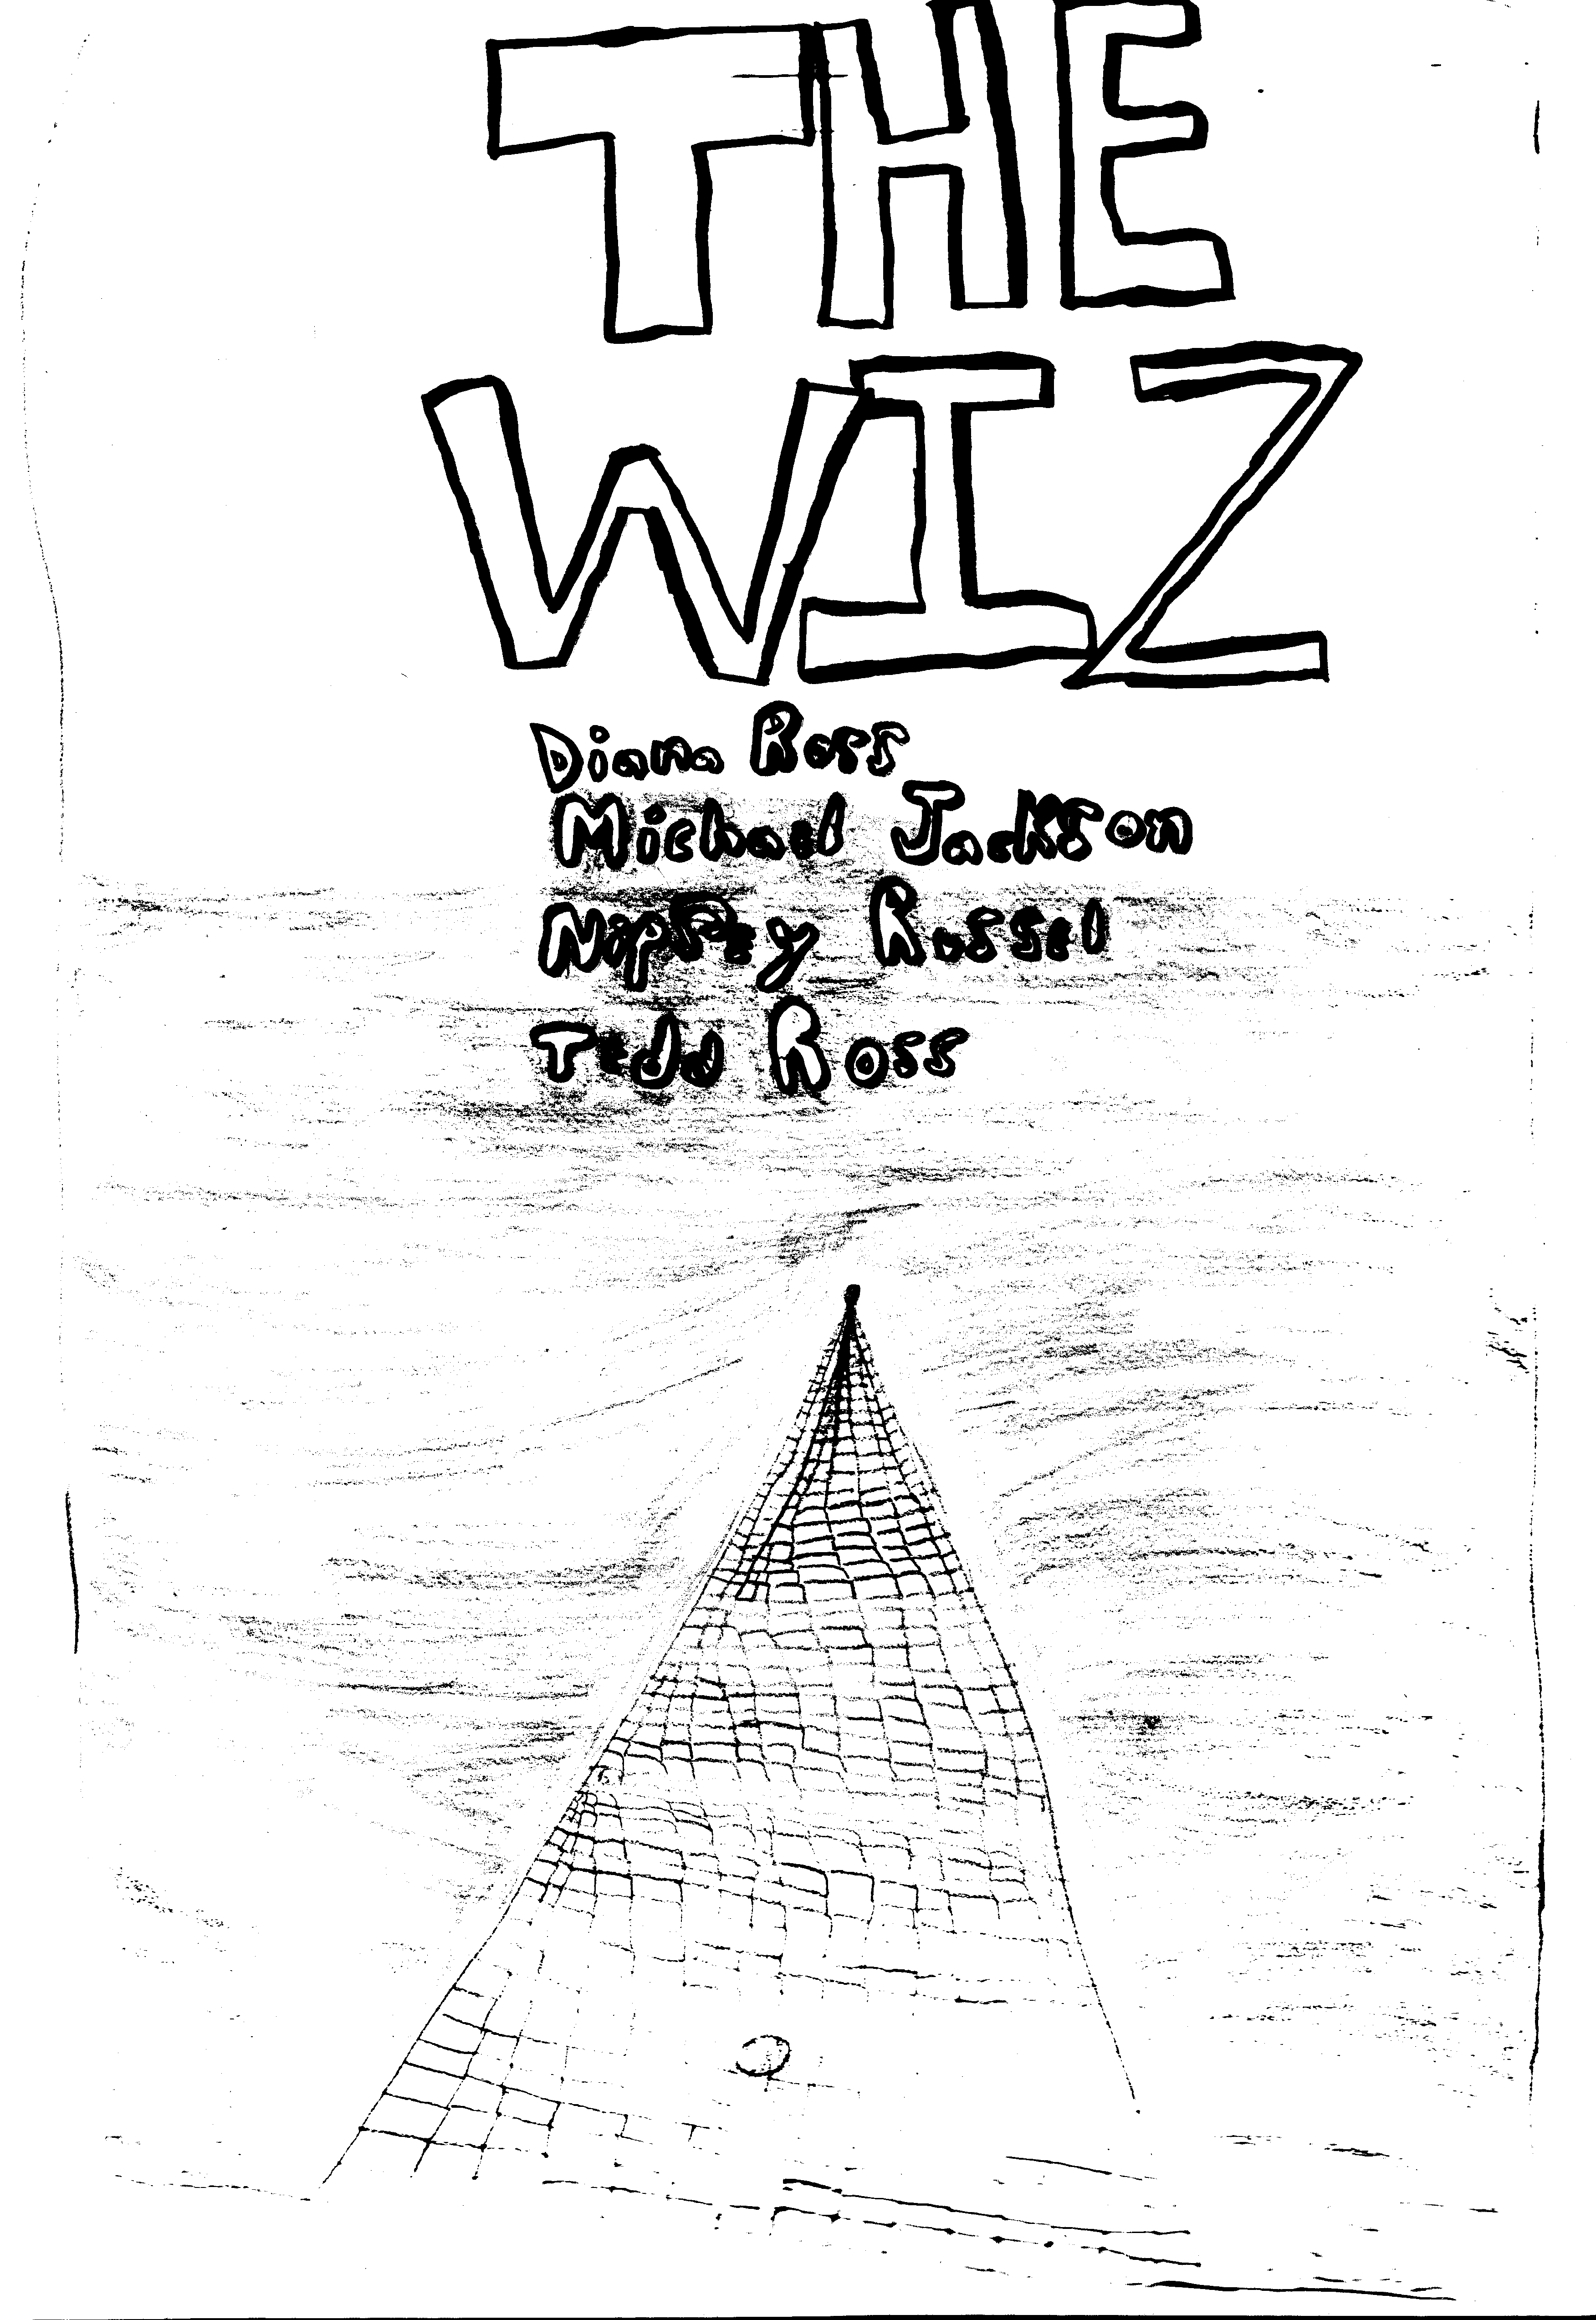 THE
WIZ
Diana Ross
Michael Jackson
Nipsey Russel
Tedd Ross